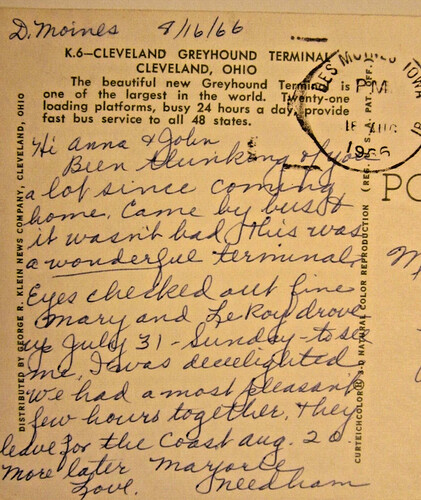 D. Moines 8/16/66
K.6—CLEVELAND GREYHOUND TERMINAL
CLEVELAND, OHIO
The beautiful new Greyhound Terminal is
one of the largest in the world. Twenty-one
loading platforms, busy 24 hours a day, provide
fast bus service to all 48 states.
DES MOINES IOWA
PM
1966
Hi Anna & John
Been thinking of you
a lot since coming
home. Came by bus &
it wasn't bad, this was
a wonderful terminal.
Eyes checked out fine
Mary and LeRoy drove
up July 31 - Sunday - to see
me, I was deeelighted
we had a most pleasant
few hours together. They
leave for the Coast Aug. 20
More later Marjorie
Love. Needham
DISTRIBUTED BY GEORGE R. KLEIN NEWS COMPANY, CLEVELAND, OHIO
CURTEICHCOLOR® 3-D NATURAL COLOR REPRODUCTION (REG. U.S.A. PAT. OFF.)
PO